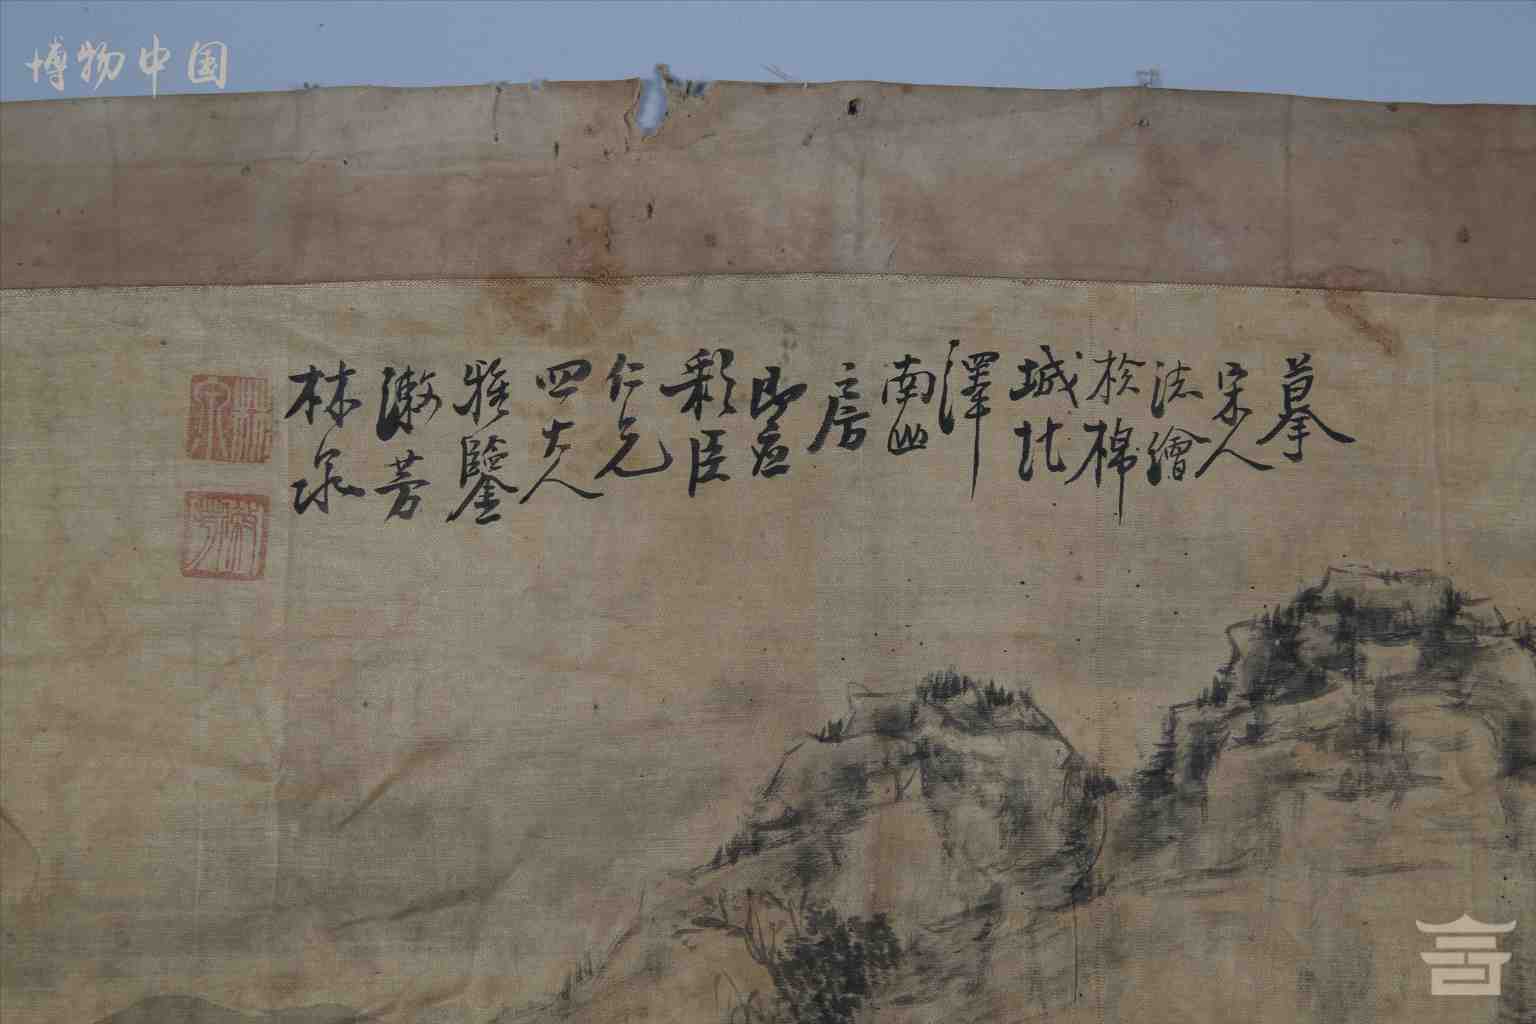 博物中国
摹
宋人
法繪
於棉
城北
澤
南山
之房
即应
彩臣
仁兄
四大人
雅鑒
漱芳
林泉